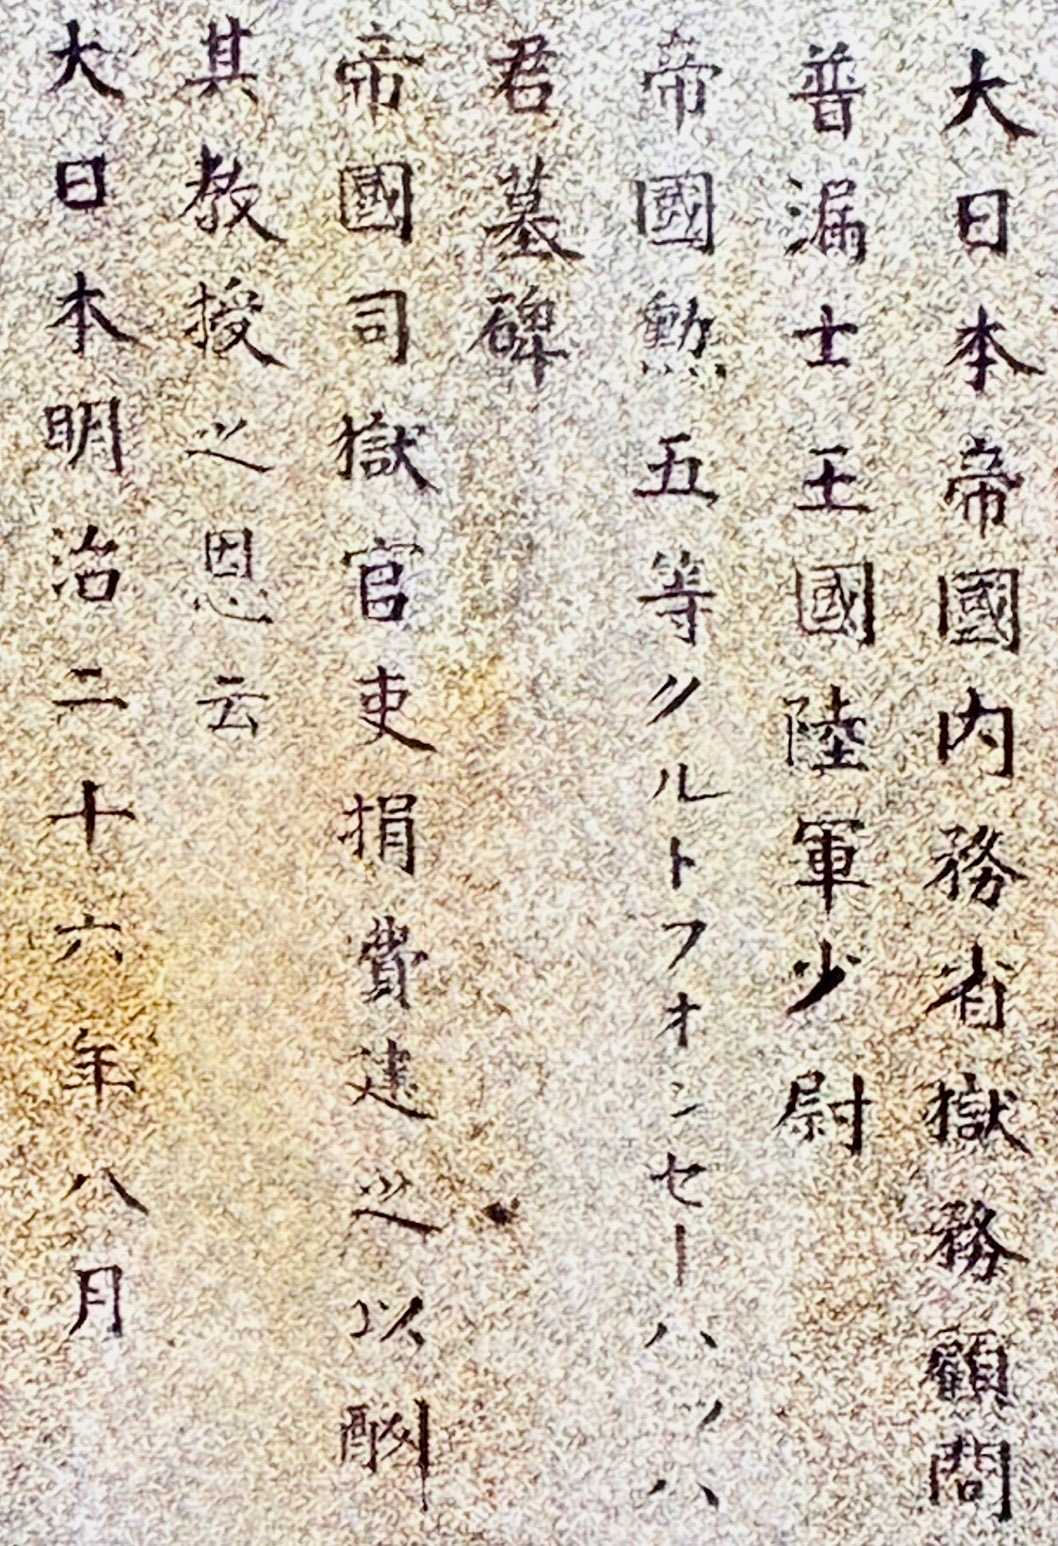 大日本帝國内務省獄務顧問
普漏士王國陸軍少尉
帝國勲五等クルトフォンセーバッハ
君墓碑
帝國司獄官吏捐費建之以酬
其教授之恩云
大日本明治二十六年八月